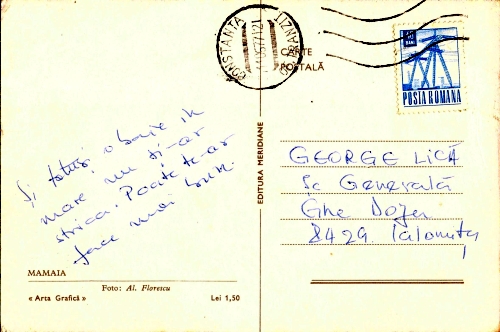 CONSTANȚA
TRANZIT
CARTE
POȘTALĂ
POSTA ROMANA
Și totuși o baie în
mare nu ți-ar
strica. Poate te-ar
face mai bun.
EDITURA MERIDIANE
GEORGE LICĂ
Sc Generală
Ghe Doja
8429 Ialomița
MAMAIA
Foto: Al. Florescu
« Arta Grafică »
Lei 1,50